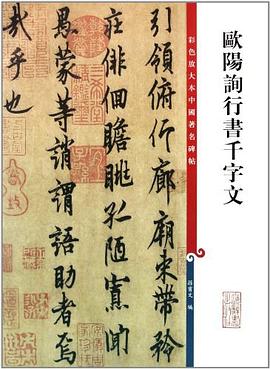 歐陽詢行書千字文
彩色放大本中國著名碑帖
孫寶文 編
引領俯仰廊廟束帶矜
莊徘徊瞻眺孤陋寡聞
愚蒙等誚謂語助者焉
哉乎也